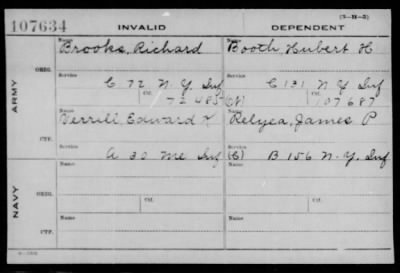 (3-H-3)
107634 INVALID DEPENDENT
Name Name
Brooks, Richard Booth, Hubert H
ORIG. Service Service
C 72 N.Y. Inf C 131 N Y Inf
Ctf. Ctf.
72485 107687
ARMY
Name Name
Verrill Edward K Relyea, James P
CTF. Service Service
A 30 Me Inf (C) B 156 N.Y. Inf
Name Name
ORIG. Service Ctf. Service Ctf.
NAVY
Name Name
CTF. Service Service